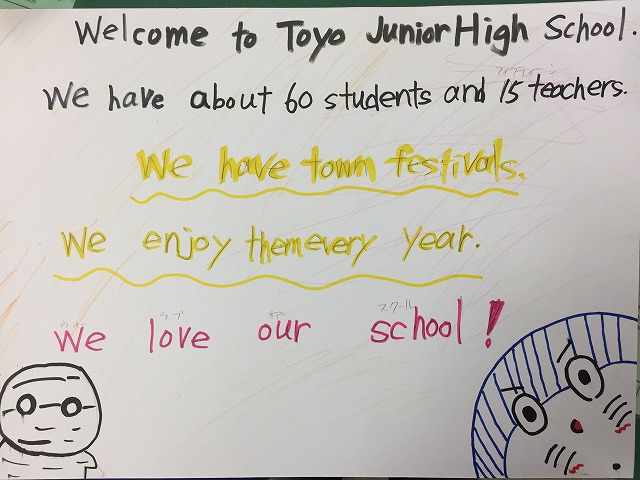 Welcome to Toyo Junior High School.
We have about 60 students and 15 teachers.
We have town festivals.
We enjoy them every year.
ラブ スクール
We love our school!